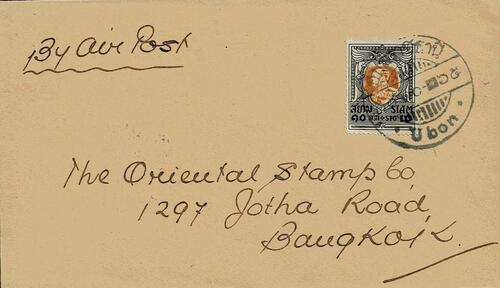 By Air Post
สยาม SIAM
Ubon
The Oriental Stamp Co,
1297 Jotha Road,
Bangkok.